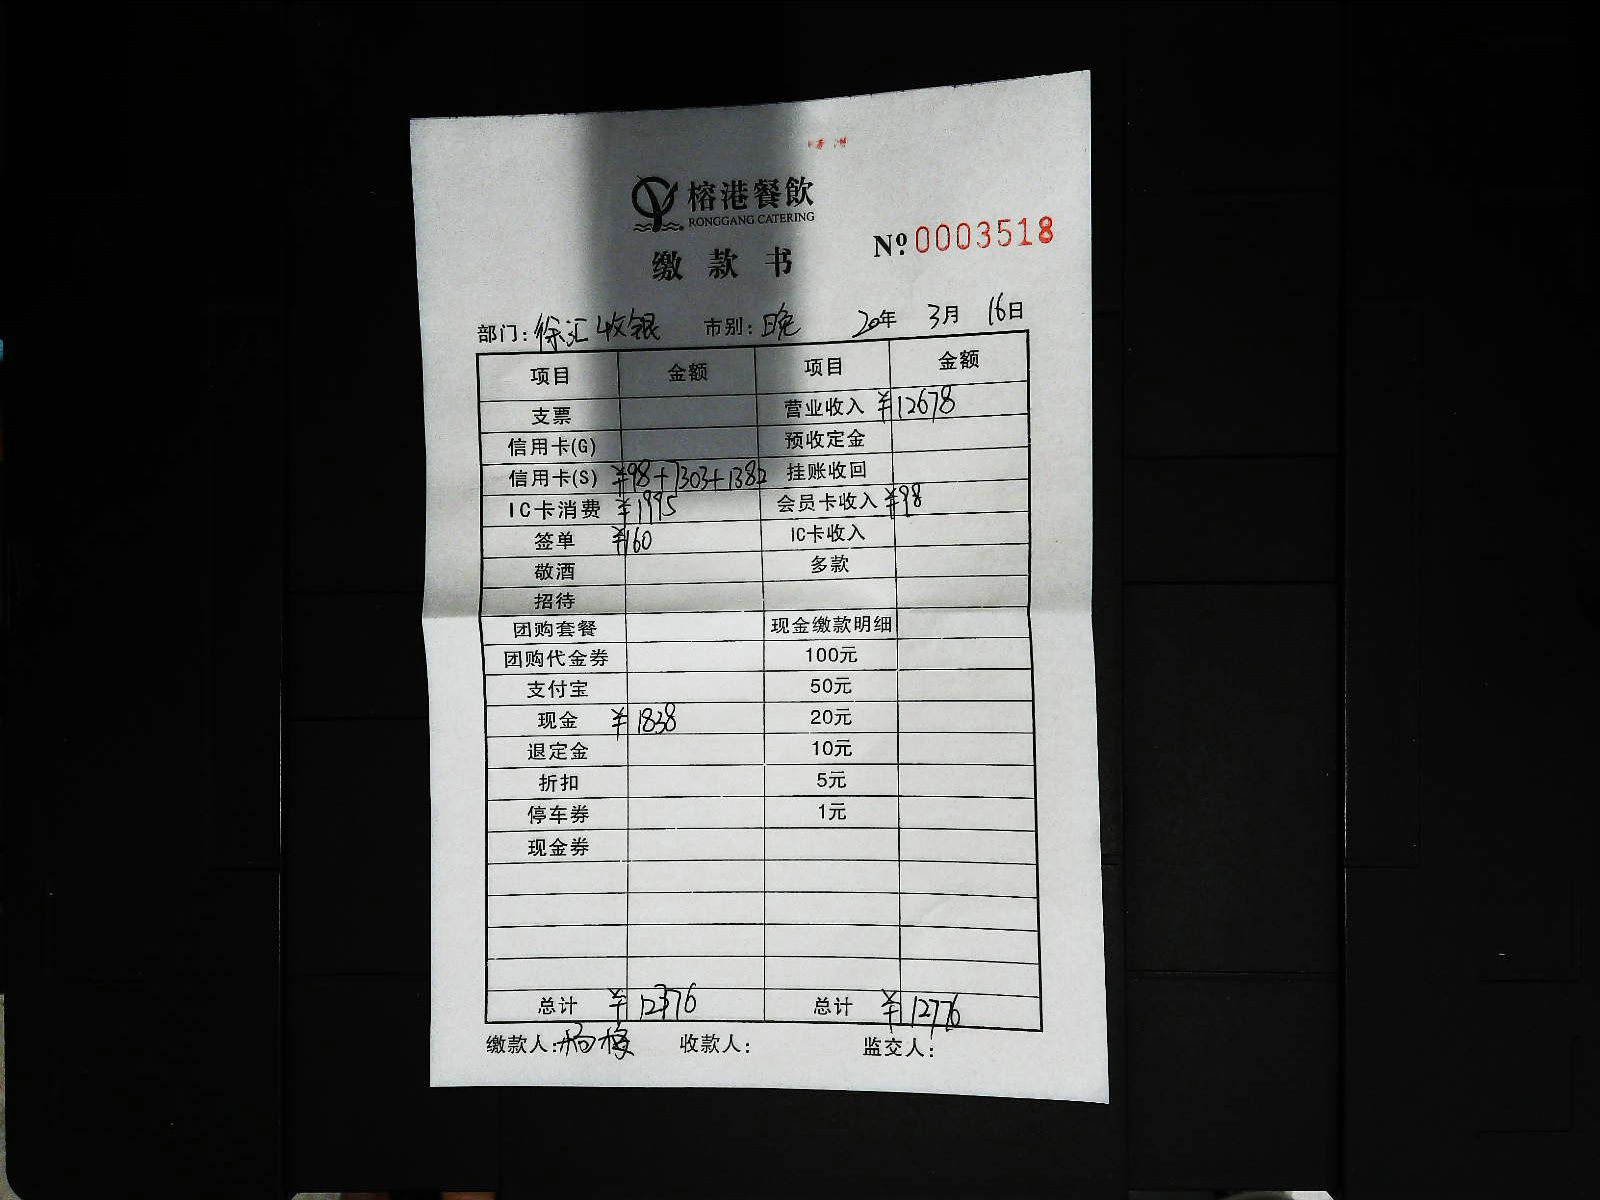 榕港餐飲
RONGGANG CATERING
Nº 0003518
缴款书
部门：徐汇收银 市别：晚 20年 3月 16日
项目 金额 项目 金额
支票 营业收入 ¥12678
信用卡(G) 预收定金
信用卡(S) ¥98+7303+1382 挂账收回
IC卡消费 ¥1995 会员卡收入 ¥98
签单 ¥160 IC卡收入
敬酒 多款
招待
团购套餐 现金缴款明细
团购代金券 100元
支付宝 50元
现金 ¥1838 20元
退定金 10元
折扣 5元
停车券 1元
现金券
总计 ¥12776 总计 ¥12776
缴款人：杨梅 收款人： 监交人：